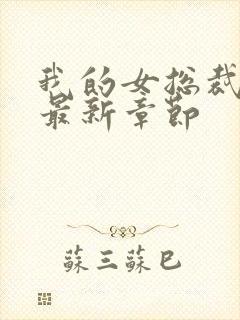 我的女总裁
最新章节
蘇三蘇巳